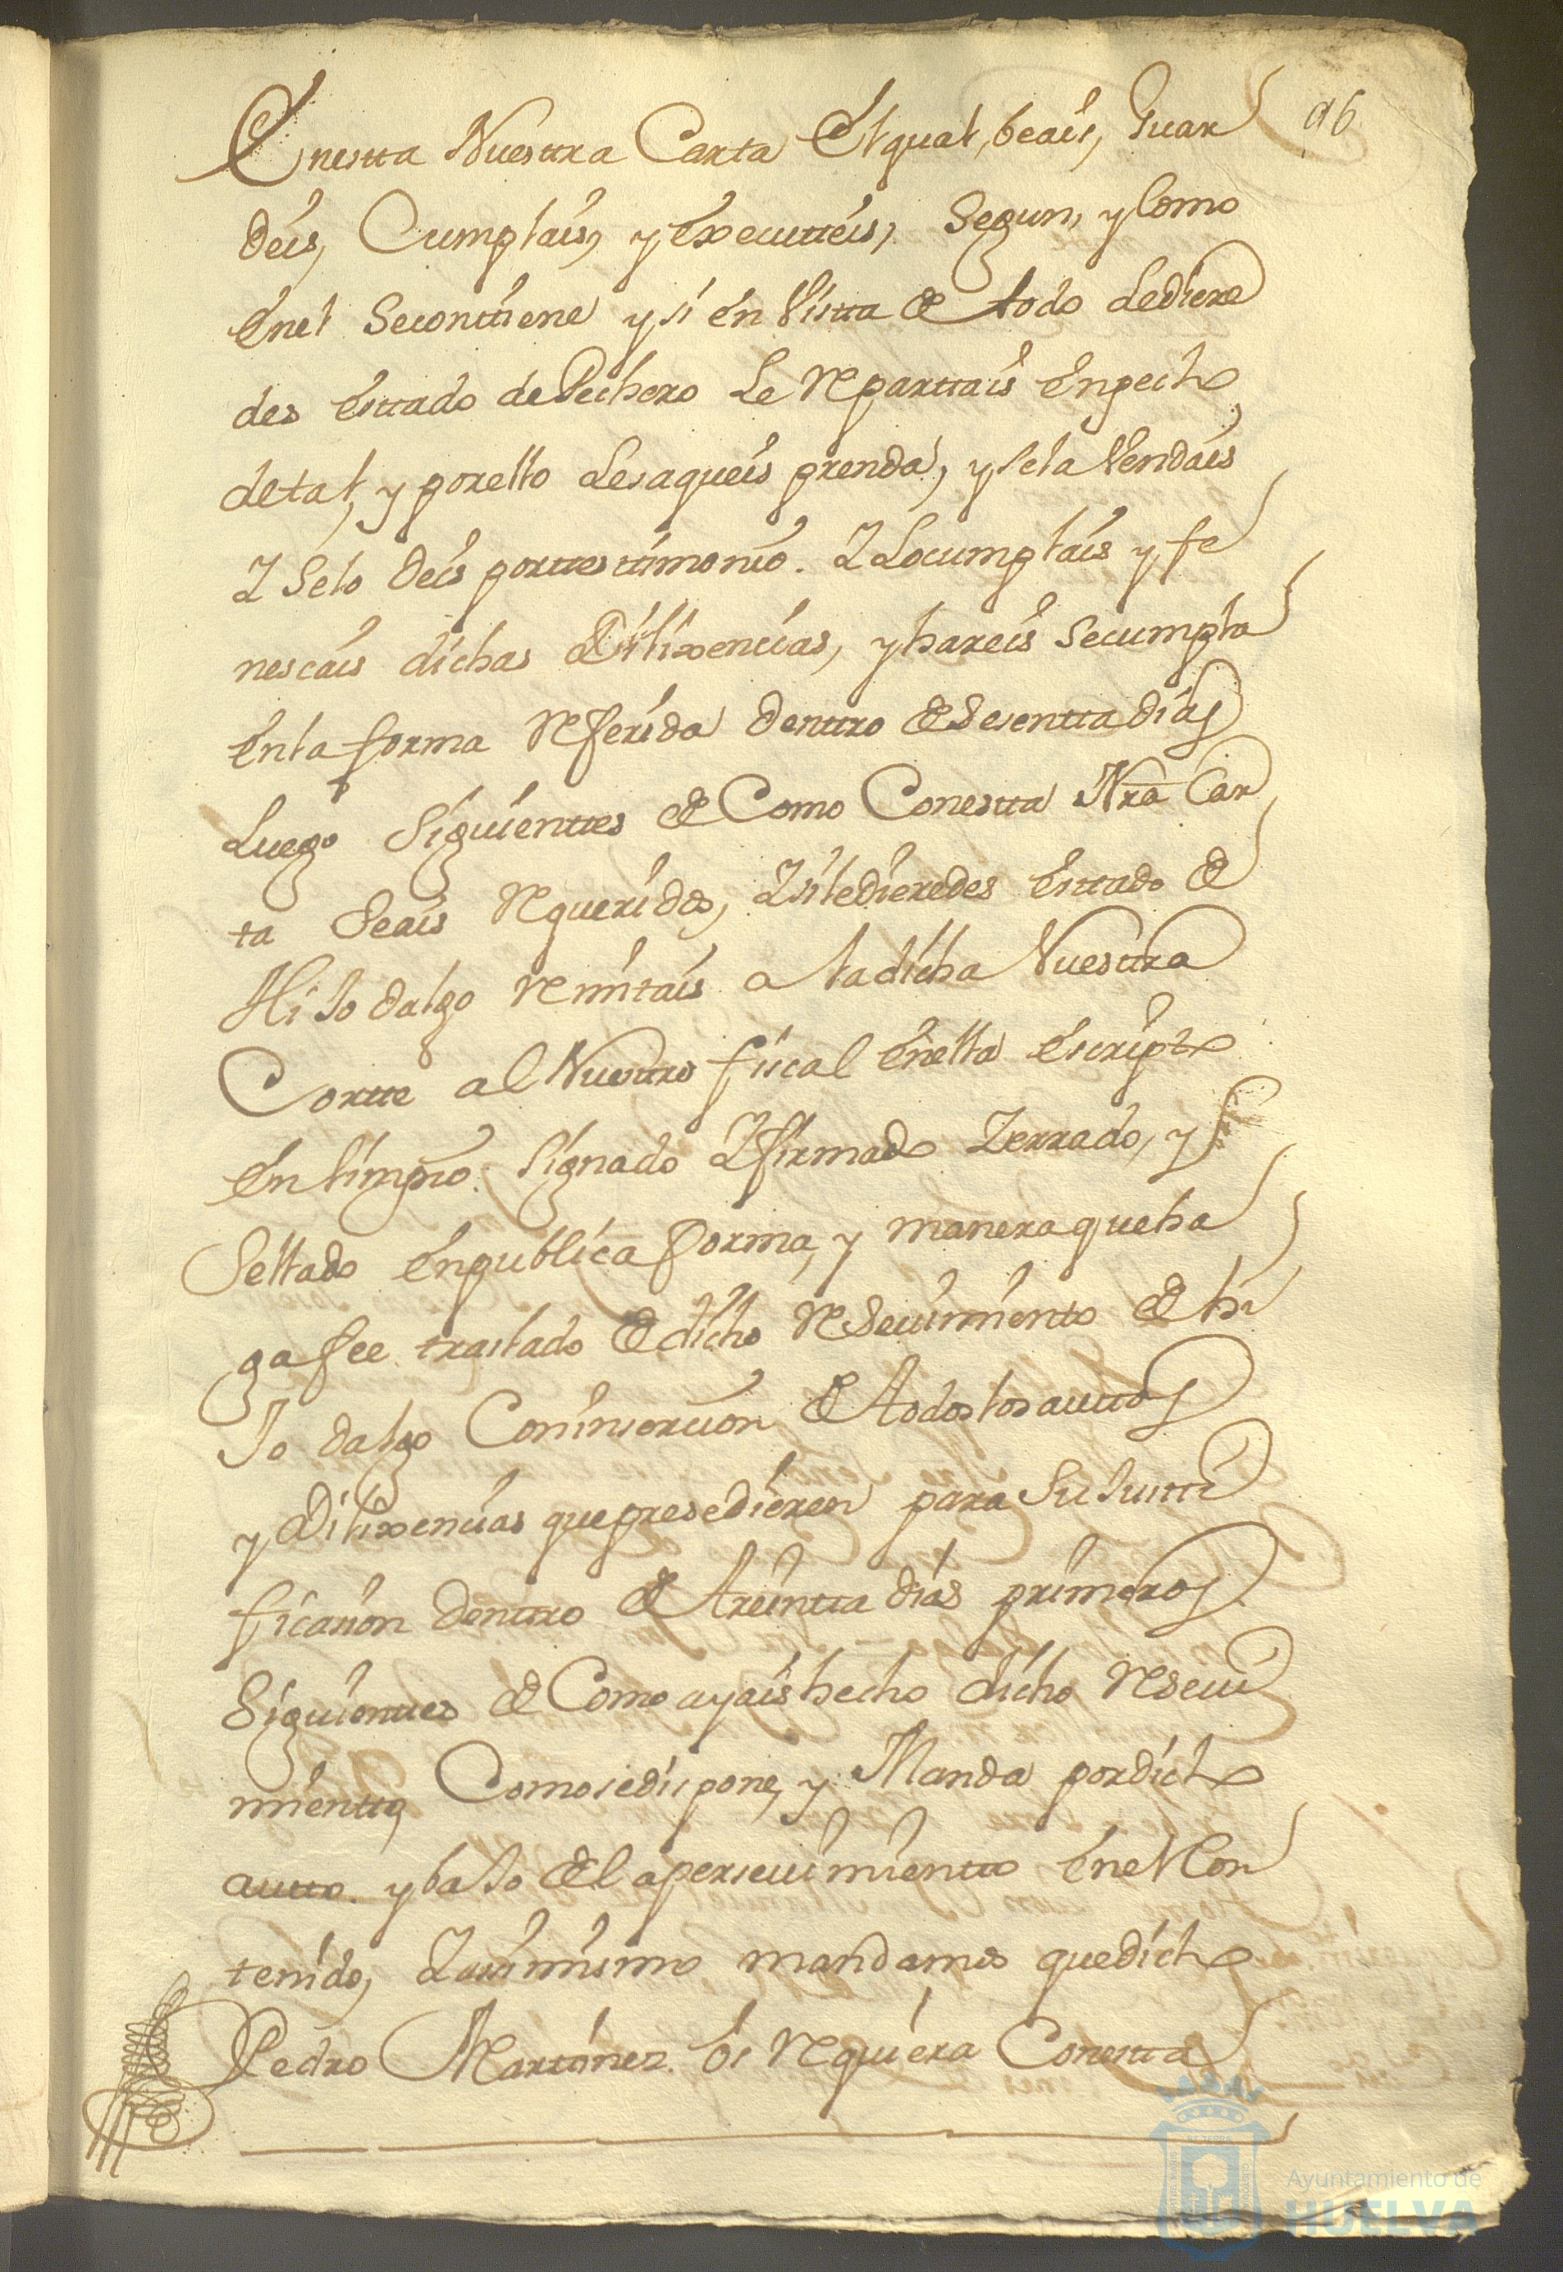 96
Enestta Nuesttra Carta El qual, beais, Guar
deis, Cumplais, y Executteis, Segun, y Como
Enel Secontiene y si en Vistta de todo Lediere
des Esttado de Pechero Le Reparttais En pecho
de tal, y porello Lesaqueis prenda, y sela Vendais
Y Selo deis portestimonio. Y Locumplais y fe
nescais dichas Dilixencias, y hareis Secumpla
Enla forma Referida dentro de Sesentta dias
Luego Siguienttes de Como Conestta Nra Car
ta Seais Requerido, Y siledieredes Esttado de
Hijodalgo Remitais a ladicha Nuesttra
Cortte al Nuesttro fiscal Enella Escripto
En limpio Signado Y firmado Zerrado, y
Sellado En publica forma, y manera que ha
ga fee traslado de dicho Resecuimiento de hi
Jo dalgo Con insercion de todos los auttos
y Dilixencias que presedieren para Su Justti
ficazion dentro de treintta dias primeros
Siguienttes de Como ayais hecho dicho Reseui
mientto, Como se dispone, y Manda por dicho
autto. y bajo del aperseuimientto Enel Con
tenido, Y asimismo mandamos que dicho
Pedro Martinez. Os Requiera Conestta
Ayuntamiento de
HUELVA